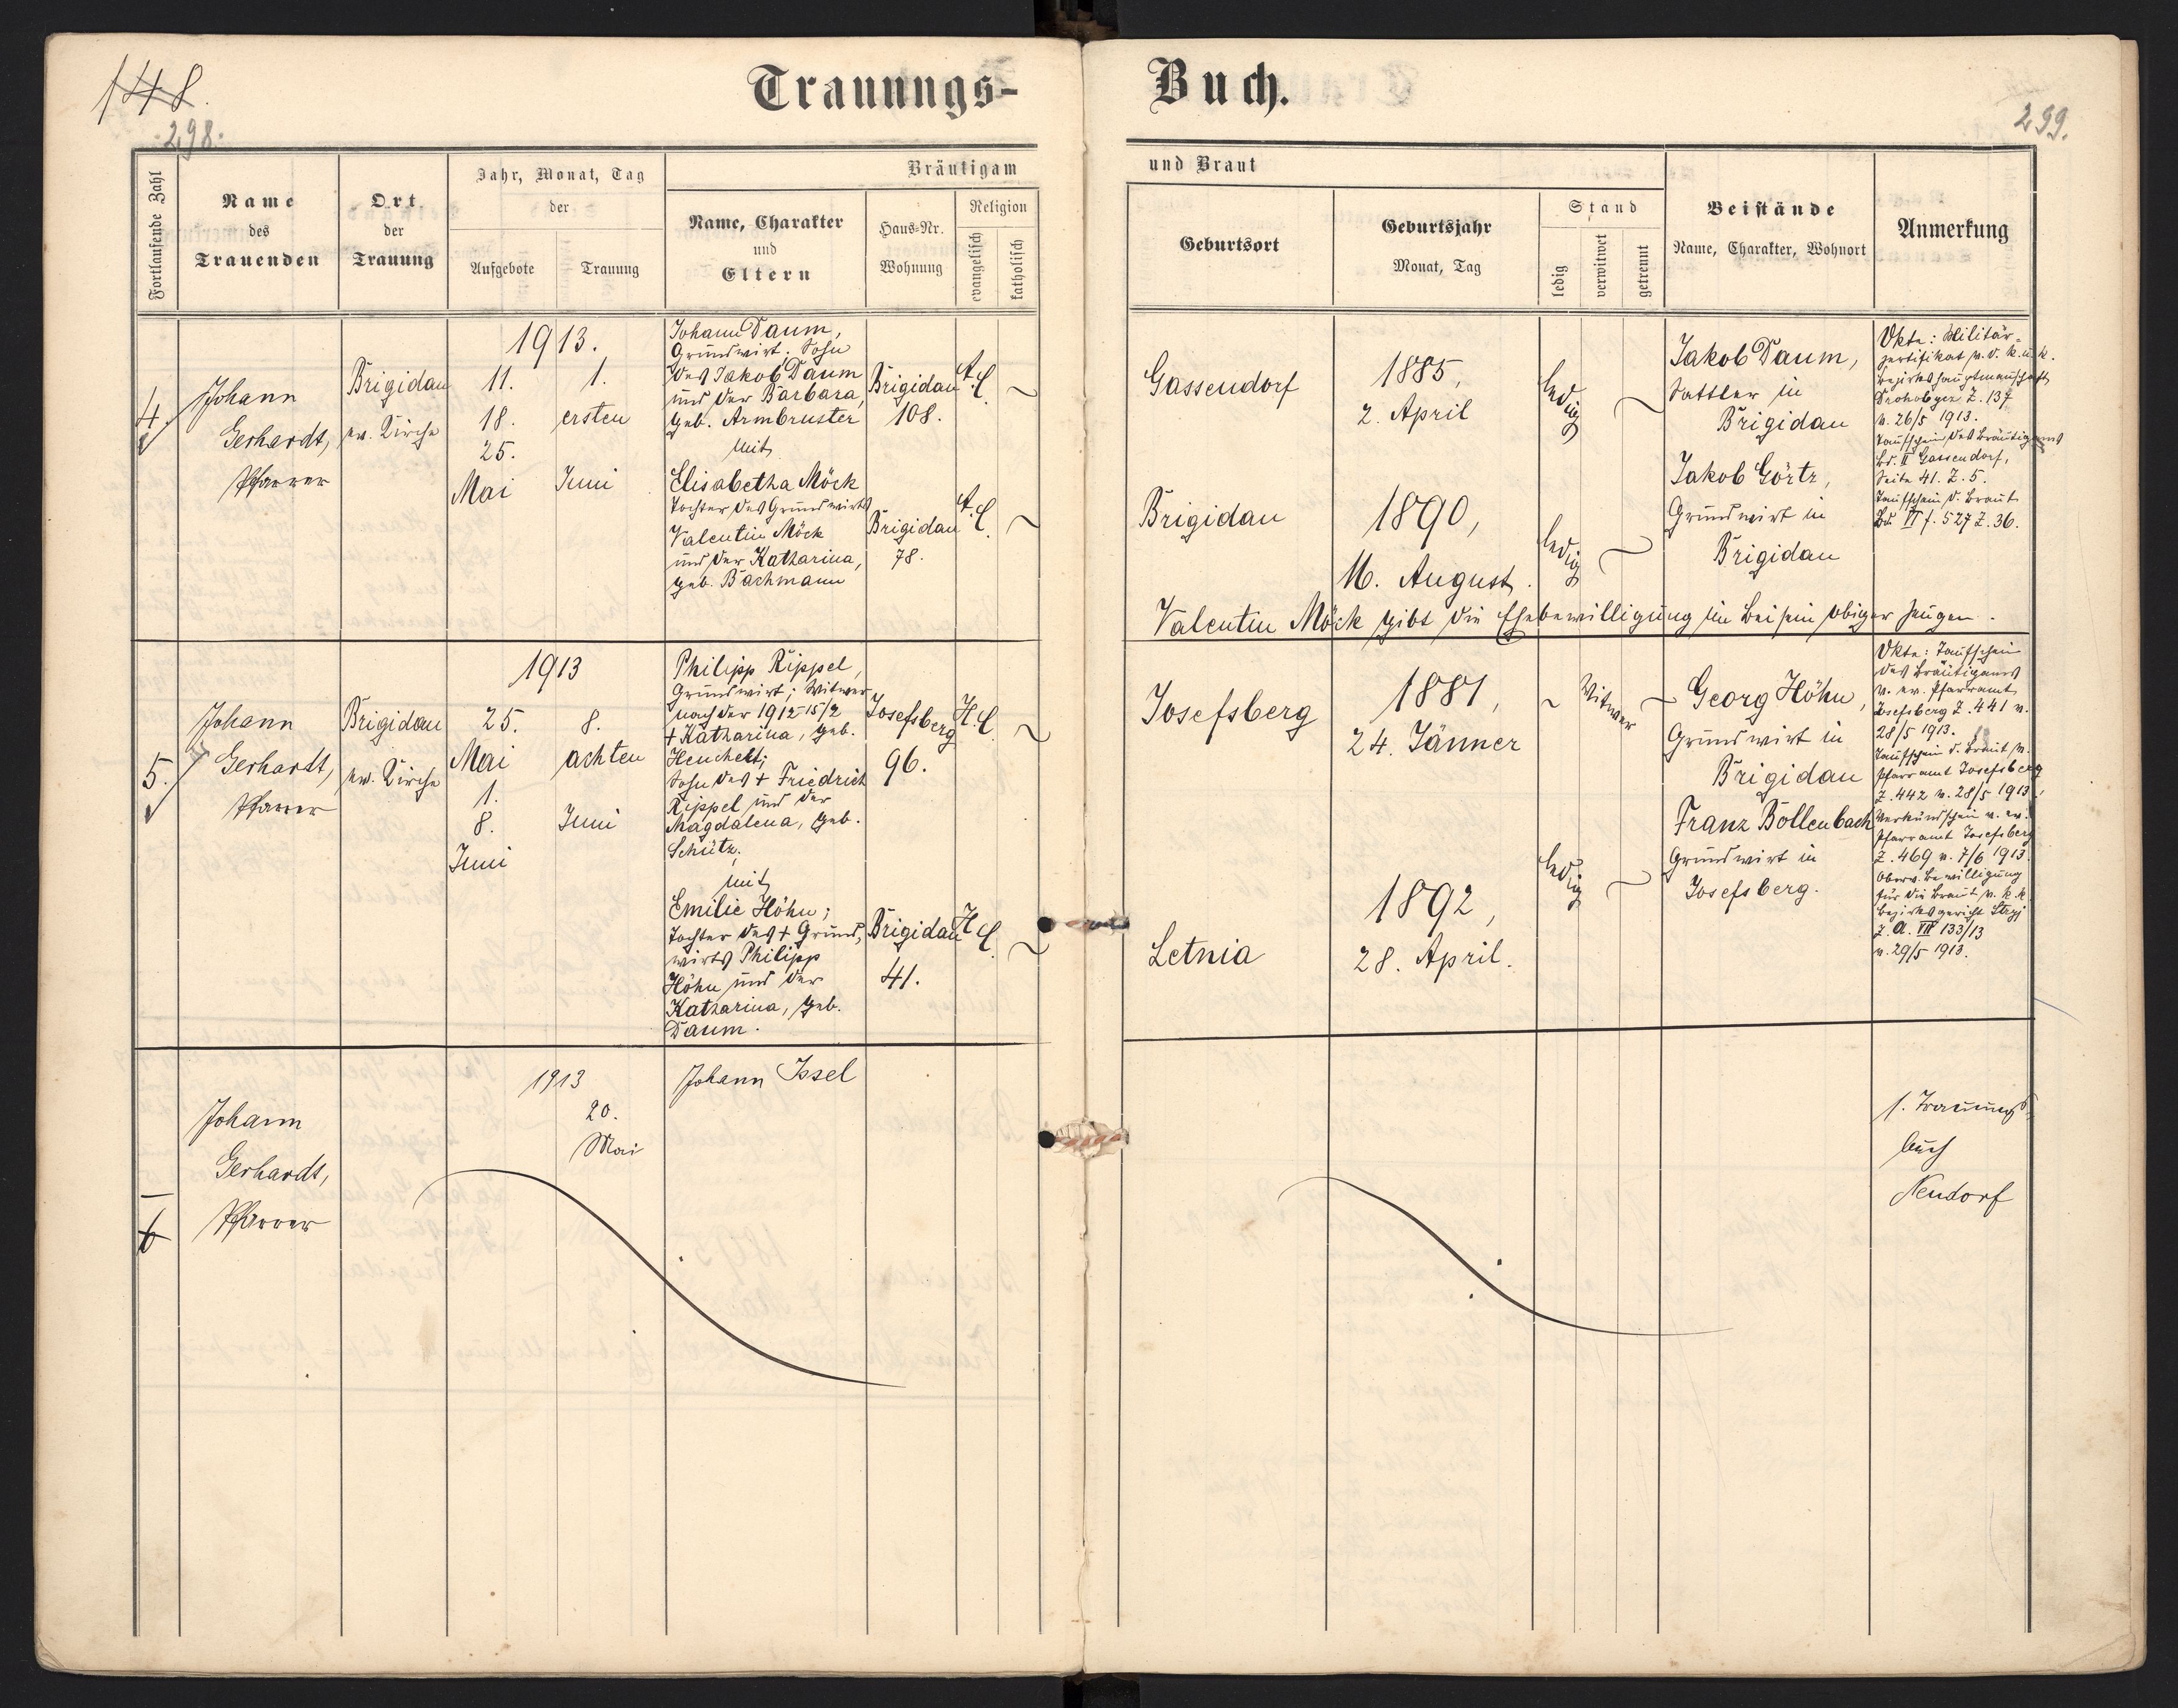 148.
298.
Trauungs-
Buch.
299.
Fortlaufende Zahl
Name
des
Trauenden
Ort
der
Trauung
Jahr, Monat, Tag
der
Aufgebote
Trauung
Bräutigam
Name, Charakter
und
Eltern
Haus-Nr.
Wohnung
Religion
evangelisch
katholisch
und Braut
Geburtsort
Geburtsjahr
Monat, Tag
Stand
ledig
verwitwet
getrennt
Beistände
Name, Charakter, Wohnort
Anmerkung
4.
Johann
Gerhardt,
Pfarrer
Brigidau
ev. Kirche
1913.
11.
18.
25.
Mai
1.
ersten
Juni
Johann Daum,
Grundwirt. Sohn
des Jakob Daum
und der Barbara,
geb. Armbruster
mit
Elisabetha Möck
Tochter des Grundwirts
Valentin Möck
und der Katharina,
geb. Bachmann
Brigidau
108.
A. C.
Brigidau
78.
A. C.
Gassendorf
1885,
2. April
ledig
Brigidau
1890,
16. August.
ledig
Jakob Daum,
Sattler in
Brigidau
Jakob Görtz,
Grundwirt in
Brigidau
Okte: Militär-
zertifikat v. d. k. u. k.
Bezirkshauptmannschaft
Drohobycz Z. 137
v. 26/5 1913.
Taufschein des Bräutigams
Bd. II Gassendorf,
Seite 41. Z. 5.
Taufschein d. Braut
Bd. VI f. 527 Z. 36.
Valentin Möck gibt die Ehebewilligung im Beisein obiger Zeugen.
5.
Johann
Gerhardt,
Pfarrer
Brigidau
ev. Kirche
1913
25.
Mai
1.
8.
Juni
8.
achten
Juni
Philipp Rippel,
Grundwirt; Witwer
nach der 1912 15/2
+ Katharina, geb.
Henchert;
Sohn des + Friedrich
Rippel und der
Magdalena, geb.
Schütz.
mit
Emilie Höhn;
Tochter des + Grund,
wirts Philipp
Höhn und der
Katharina, geb.
Daum.
Josefsberg
96.
H. C.
Brigidau
41.
H. C.
Josefsberg
1881,
24. Jänner
Witwer
Letnia
1892,
28. April.
ledig
Georg Höhn,
Grundwirt in
Brigidau
Franz Bollenbach
Grundwirt in
Josefsberg.
Okte: Taufschein
des Bräutigams
v. ev. Pfarramt
Josefsberg Z. 441 v.
28/5 1913.
Taufschein d. Braut v.
Pfarramt Josefsberg
Z. 442 v. 28/5 1913.
Verkündschein v. ev.
Pfarramt Josefsberg
Z. 469 v. 7/6 1913.
Oberv. Bewilligung
für die Braut v. k. k.
Bezirksgericht Stryj
Z. A. VII 133/13
v. 29/5 1913.
6
Johann
Gerhardt,
Pfarrer
1913
20.
Mai
Johann Issel
1. Trauungs
buch
Neudorf